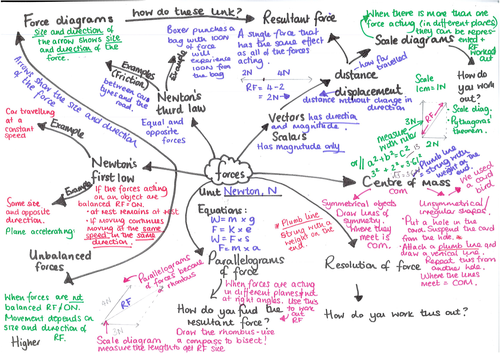 Force diagrams
how do these link?
Resultant force
size and direction of
the arrow shows size
and direction of the
force.
Boxer punches a
bag with 100N
of force
will
experience
100N from
the bag
A single force that
has the same effect
as all of the forces
acting.
2N 4N
RF = 4-2
= 2N
When there is more than one
force acting (in different places)
they can be repres-
ented +
RF
worked
out
Scale diagrams
How do
you do
this?
Scale
1cm = 1N
3N
RF
measure
with ruler
Scale diag.
Pythagoras
theorem.
or // a²+b²=c²
distance
how far
travelled
displacement
distance without change in
direction
Vectors has direction
and magnitude.
Scalars
Has magnitude only
Examples
(Friction)
between car
tyres and the
road.
Examples
Newtons
third law
Equal and
opposite
forces
Arrows show the size and direction
of the force
Car travelling
at a
constant
speed
Example
Newton's
first law
Example
Same size
and opposite
direction.
Plane accelerating
If the forces acting
on an object are
balanced RF=0N.
at rest remains at rest
if moving continues
moving at the same
speed in the same
direction.
forces
Unit Newton, N
Equations:
W = m x g
F = k x e
W = F x s
F = m x a
Plumb line
String with a
weight on the
end.
Centre of mass
Plumb line
string with a
weight on
the end.
Symmetrical objects
Draw lines of
symmetry.
Where they
meet is
COM.
Unsymmetrical/
irregular shapes.
Put a hole in the
card. Suspend the card
from the hole.
Attach a plumb line and
draw a vertical line.
Repeat this from
another hole.
Where the lines
meet = COM.
We used a
card
bird.
Unbalanced
forces
When forces are not
balanced RF≠0N.
Movement depends on
size and direction of
RF.
Higher
Parallelograms
of forces become
a rhombus
4N
RF
3N
Scale diagram
measure the length to get RF size
Parallelograms
of force
When forces are acting
in different planes/not
at right angles. Use this
to work
out RF
How do you find the
resultant force?
Draw the rhombus - use
a compass to bisect!
Resolution of force
How do you work this out?